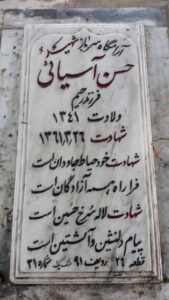 آرامگاه سرباز شهید
حسن آسیائی
فرزند رحیم
ولادت ۱۳۴۱
شهادت ۱۳۶۱٫۳٫۲۶
شهادت خود حیاط جاودان است
فرا راه همه آزادگان است
شهادت لاله سرخ حسین است
پیام دلنشین و آتشین است
قطعه ۲۶ ردیف ۹۱ شماره ۳۱